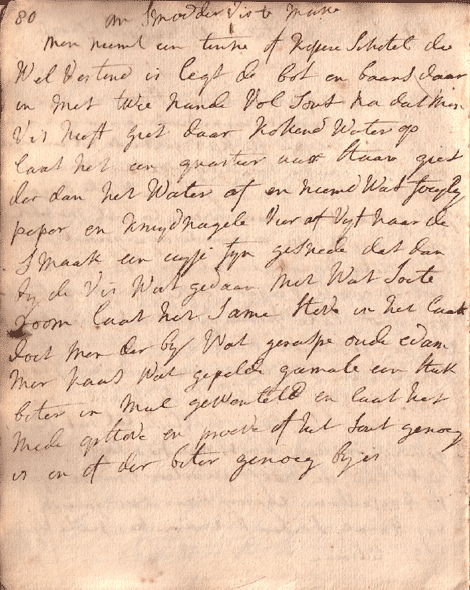 80 om Smoddervis te make
men neemt een tinne of kopere Schotel die
Wel Vertind is legt de bot en baars daar
in met twee hande Vol Sout na dat Min
Vis heeft giet daar kokend Water op
laat het een quartier uur Staan giet
der dan het Water af en neemd Wat foeyly
peper en kruydnagele Vier af Vyf naar de
Smaak een uypie fyn gesnede dat dan
by de Vis Wat gedaan met Wat Soete
Room laat het Same Stove in het laast
doet men der by Wat geraspe oude edam
mer kaas Wat gepelde garnale een Stuk
boter in Mul gewenteld en laat het
mede opstove en proeve of het Sout genoeg
is en of der boter genoeg by is